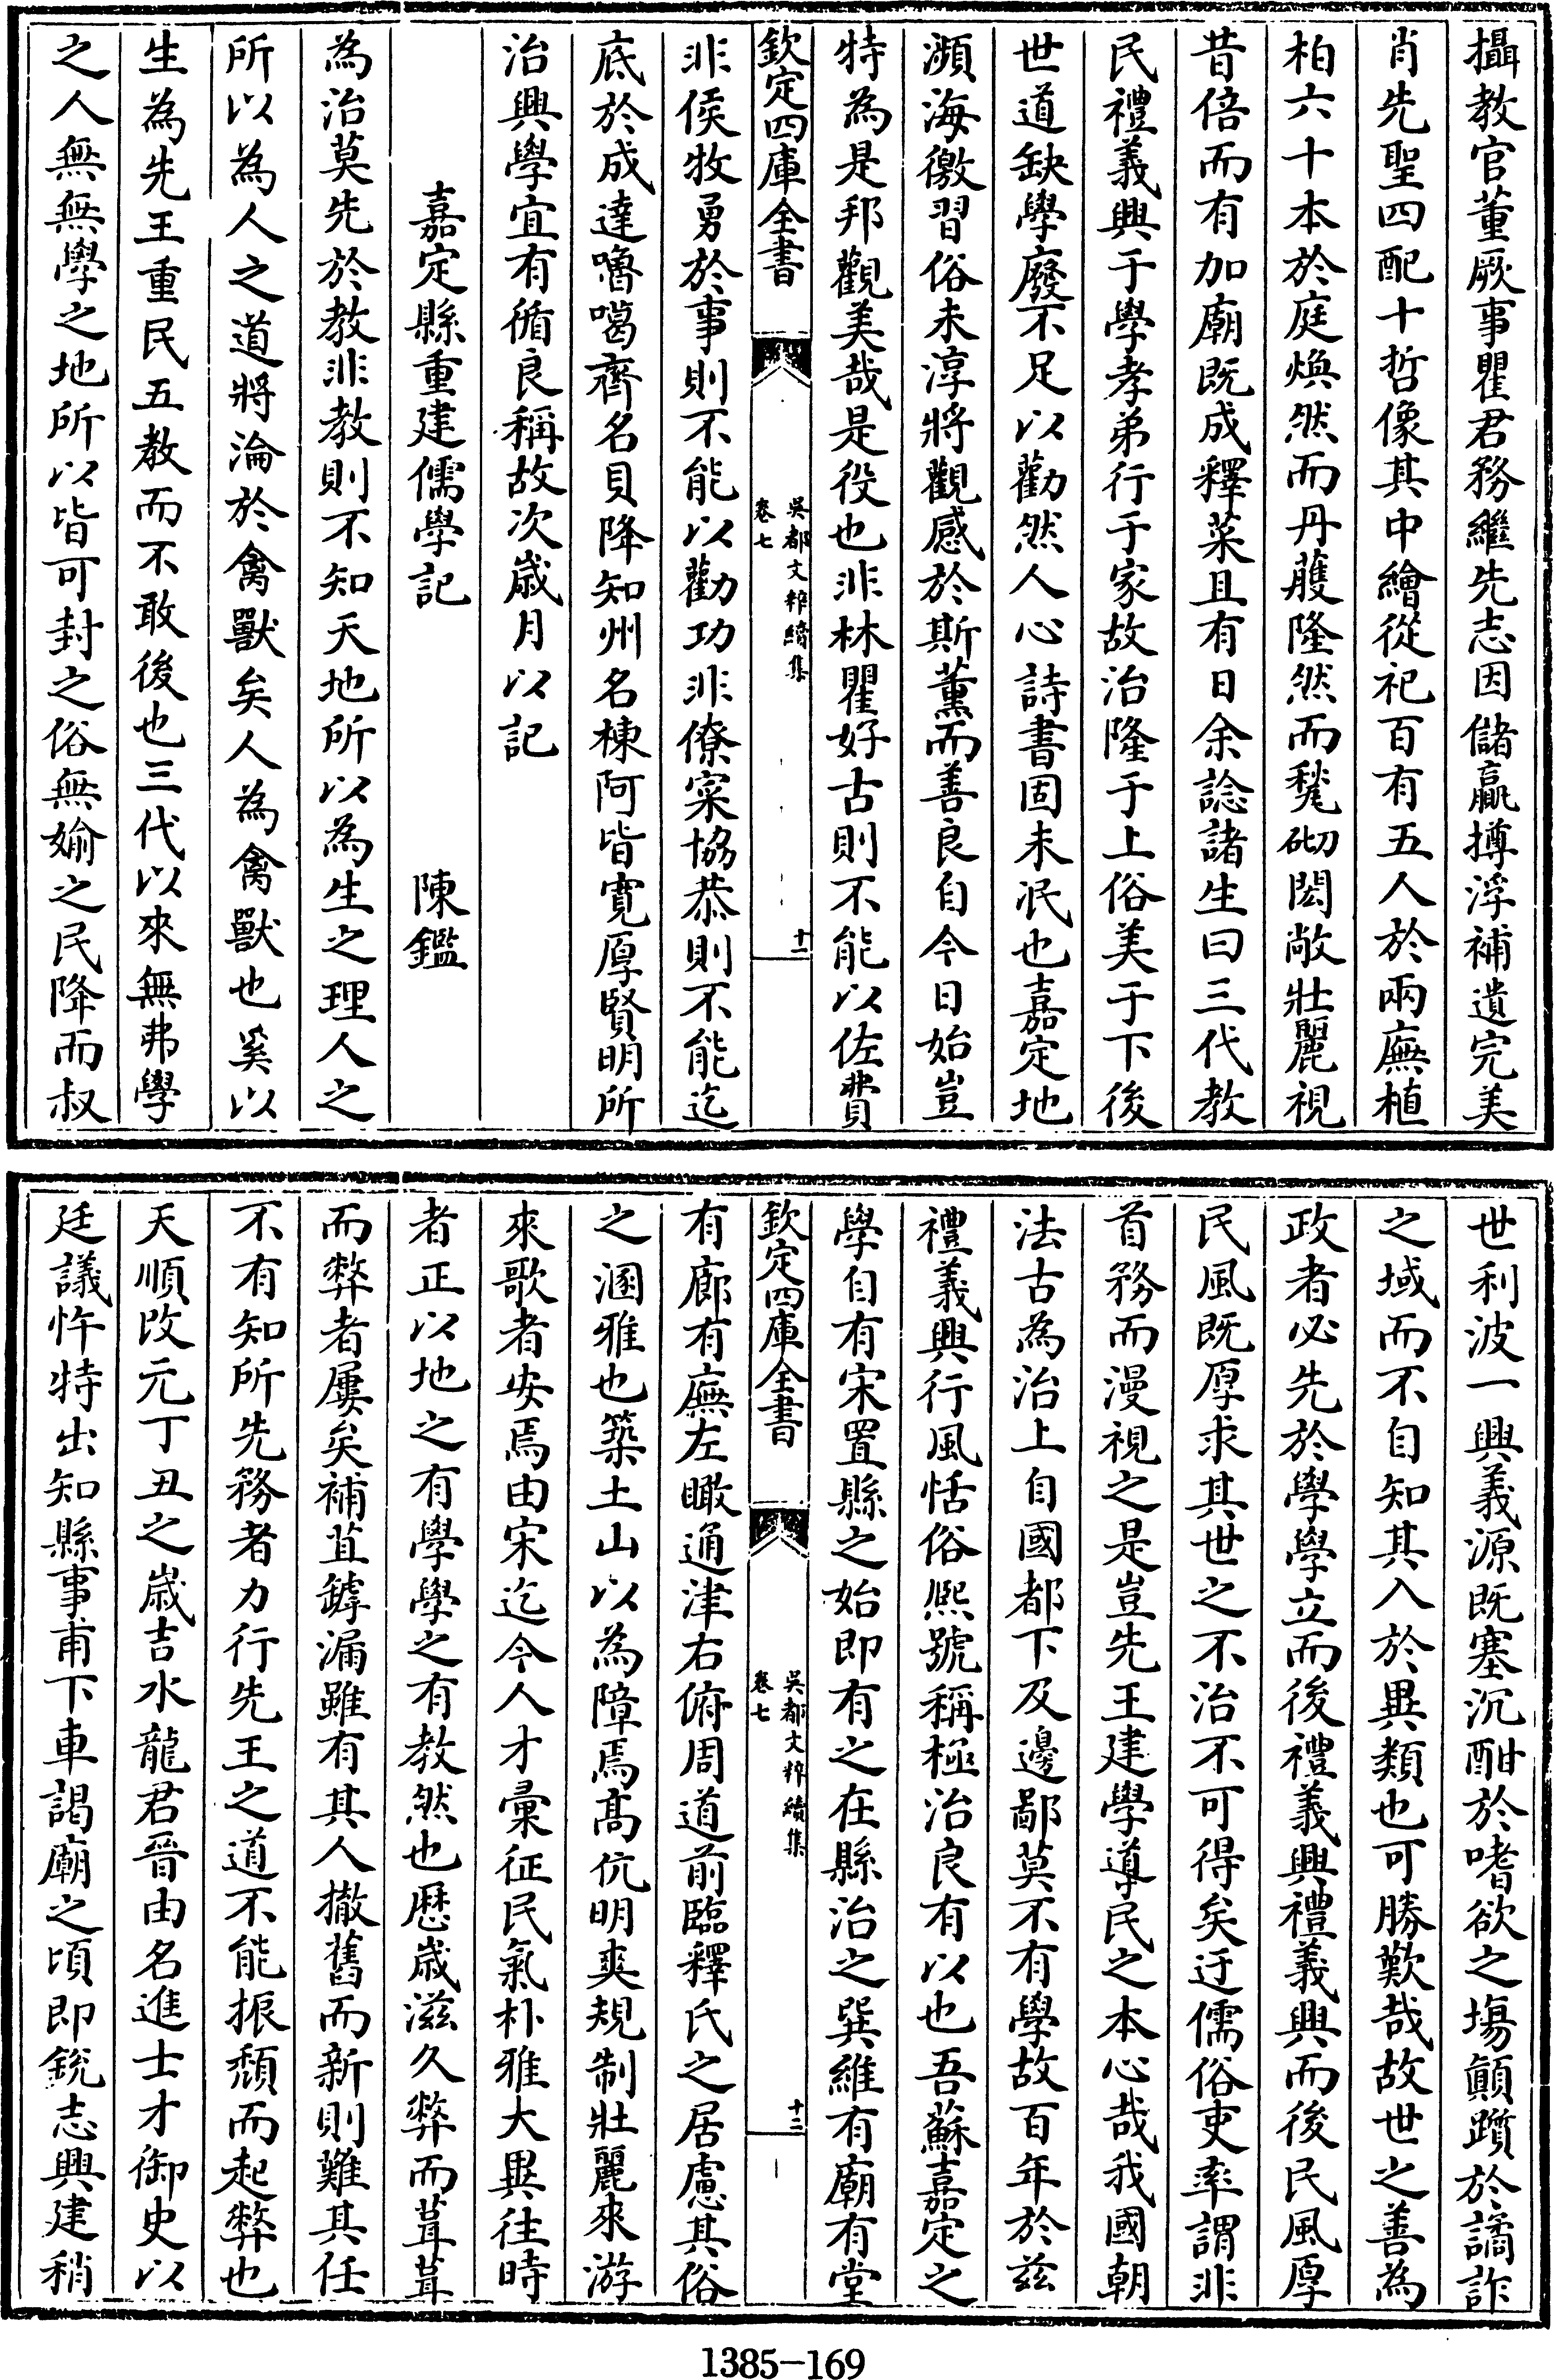 攝教官董厥事瞿君務繼先志因儲贏摶浮補遺完美
肖先聖四配十哲像其中繪從祀百有五人於兩廡植
柏六十本於庭煥然而丹雘隆然而甃砌閎敞壯麗視
昔倍而有加廟既成釋菜且有日余諗諸生曰三代教
民禮義興于學孝弟行于家故治隆于上俗美于下後
世道缺學廢不足以勸然人心詩書固未泯也嘉定地
瀕海徼習俗未淳將觀感於斯薰而善良自今日始豈
特為是邦觀美哉是役也非林瞿好古則不能以佐費
欽定四庫全書
吳都文粹續集
卷七
十一
非侯牧勇於事則不能以勸功非僚寀協恭則不能迄
底於成達嚕噶齊名貝降知州名棟阿皆寛厚賢明所
治興學宜有循良稱故次歲月以記
嘉定縣重建儒學記
陳鑑
為治莫先於教非教則不知天地所以為生之理人之
所以為人之道將淪於禽獸矣人為禽獸也奚以
生為先王重民五教而不敢後也三代以來無弗學
之人無無學之地所以皆可封之俗無媮之民降而叔
世利波一興義源既塞沉酣於嗜欲之塲顛躓於譎詐
之域而不自知其入於異類也可勝歎哉故世之善為
政者必先於學學立而後禮義興禮義興而後民風厚
民風既厚求其世之不治不可得矣迂儒俗吏率謂非
首務而漫視之是豈先王建學導民之本心哉我國朝
法古為治上自國都下及邊鄙莫不有學故百年於兹
禮義興行風恬俗熙號稱極治良有以也吾蘇嘉定之
學自有宋置縣之始即有之在縣治之巽維有廟有堂
欽定四庫全書
吳都文粹續集
卷七
十二
有廊有廡左瞰通津右俯周道前臨釋氏之居慮其俗
之溷雅也築土山以為障焉髙伉明爽規制壯麗來游
來歌者安焉由宋迄今人才彙征民氣朴雅大異往時
者正以地之有學學之有教然也歴歲滋久弊而葺葺
而弊者屢矣補苴罅漏雖有其人撤舊而新則難其任
不有知所先務者力行先王之道不能振頹而起弊也
天順改元丁丑之歲吉水龍君晉由名進士才御史以
廷議忤特出知縣事甫下車謁廟之頃即銳志興建稍
1385-169